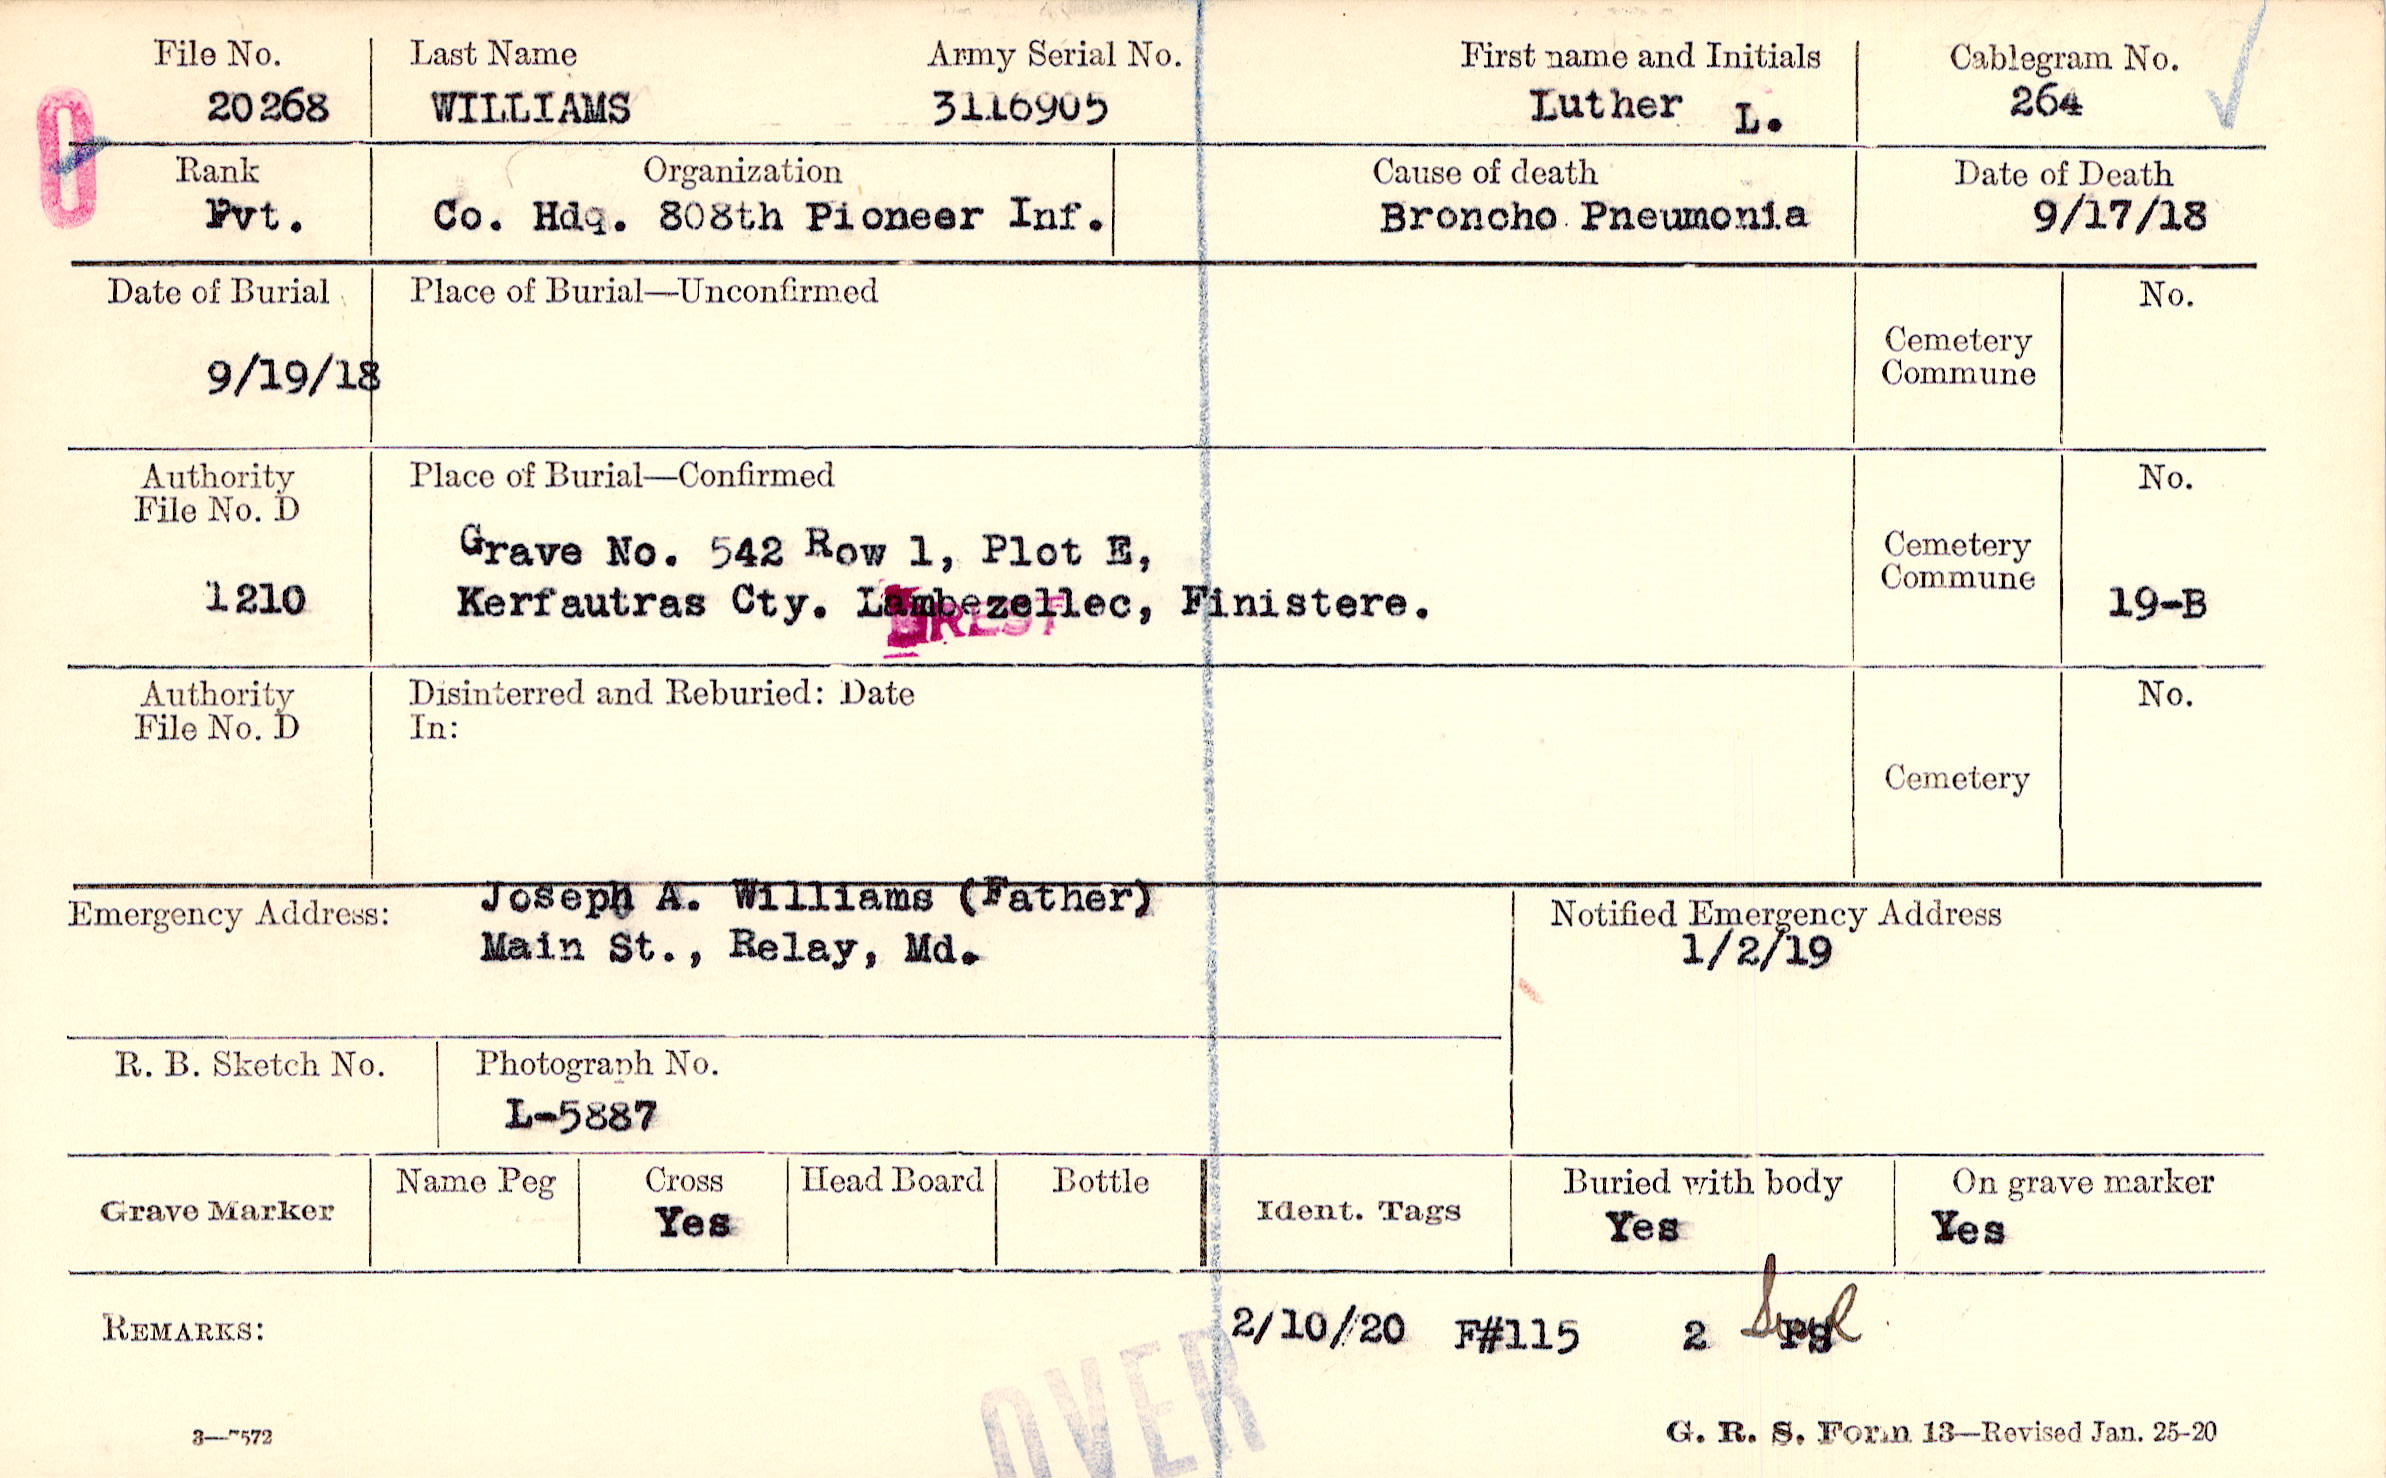 File No. Last Name Army Serial No. First name and Initials Cablegram No.
20268 WILLIAMS 3116905 Luther L. 264
Rank Organization Cause of death Date of Death
Pvt. Co. Hdq. 808th Pioneer Inf. Broncho Pneumonia 9/17/18
Date of Burial Place of Burial—Unconfirmed No.
Cemetery
Commune
9/19/18
Authority Place of Burial—Confirmed No.
File No. D
Grave No. 542 Row 1, Plot E, Cemetery
Commune
1210 Kerfautras Cty. Lambezellec, Finistere. 19-B
BREST
Authority Disinterred and Reburied: Date No.
File No. D In:
Cemetery
Emergency Address: Joseph A. Williams (Father) Notified Emergency Address
Main St., Relay, Md. 1/2/19
R. B. Sketch No. Photograph No.
L-5887
Grave Marker Name Peg Cross Head Board Bottle Ident. Tags Buried with body On grave marker
Yes Yes Yes
REMARKS: 2/10/20 F#115 2 PS
OVER
G. R. S. Form 13—Revised Jan. 25-20